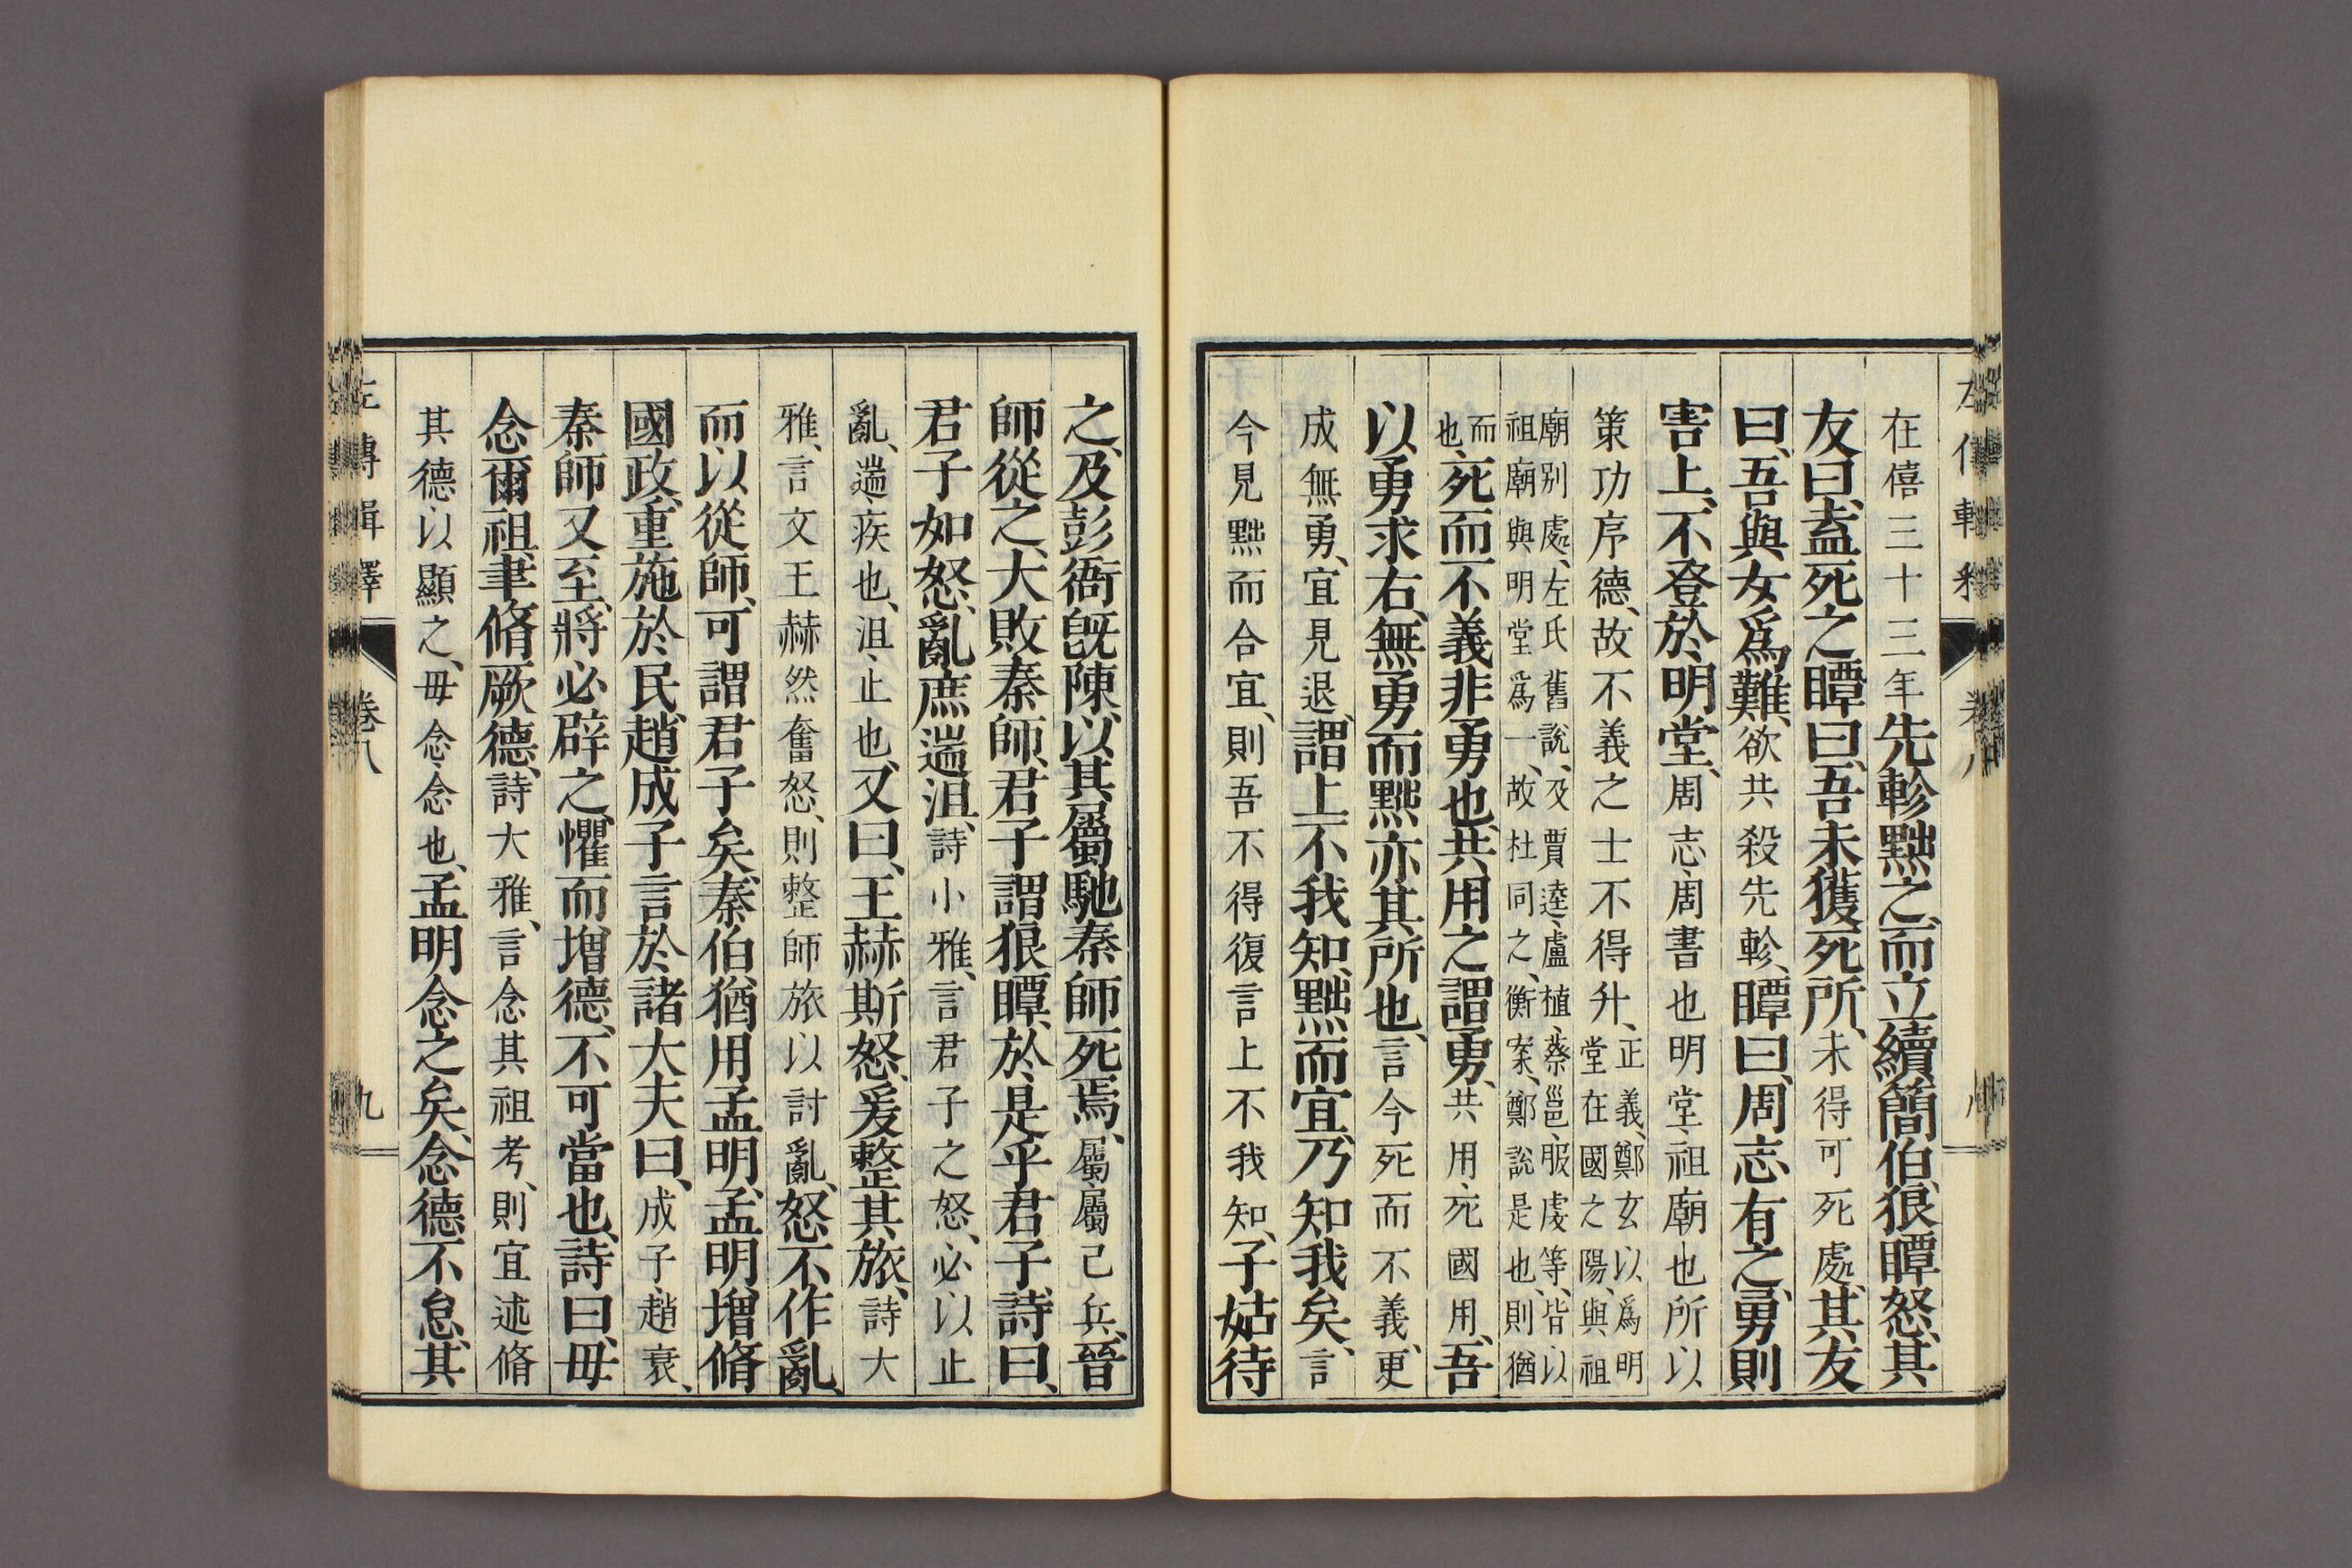 在僖三十三年先軫黜之、而立續簡伯、狼瞫怒、其
友曰、盍死之、瞫曰、吾未獲死所、未得可死處、其友
曰、吾與女爲難、欲共殺先軫、瞫曰、周志有之、勇則
害上、不登於明堂、周志、周書也明堂、祖廟也所以
策功序德、故不義之士不得升、正義、鄭玄以爲明堂在國之陽、與祖
廟別處、左氏舊說、及賈逵、盧植、蔡邕、服虔等、皆以祖廟與明堂爲一、故杜同之、衡案、鄭說是也、則猶
而也、死而不義、非勇也、共用之謂勇、共用、死國用、吾
以勇求右、無勇而黜、亦其所也、言今死而不義、更
成無勇、宜見退、謂上不我知、黜而宜、乃知我矣、言
今見黜而合宜、則吾不得復言上不我知、子姑待
之、及彭衙旣陳、以其屬馳秦師死焉、屬、屬己兵、晉
師從之、大敗秦師、君子謂狼瞫於是乎君子、詩曰、
君子如怒、亂庶遄沮、詩小雅、言君子之怒、必以止
亂、遄、疾也、沮、止也、又曰、王赫斯怒、爰整其旅、詩大
雅、言文王赫然奮怒、則整師旅以討亂、怒不作亂、
而以從師、可謂君子矣、秦伯猶用孟明、孟明增脩
國政、重施於民、趙成子言於諸大夫曰、成子、趙衰、
秦師又至、將必辟之、懼而增德、不可當也、詩曰、毋
念爾祖、聿脩厥德、詩大雅、言念其祖考、則宜述脩
其德以顯之、毋念、念也、孟明念之矣、念德不怠、其
左傳輯釋 卷八 九